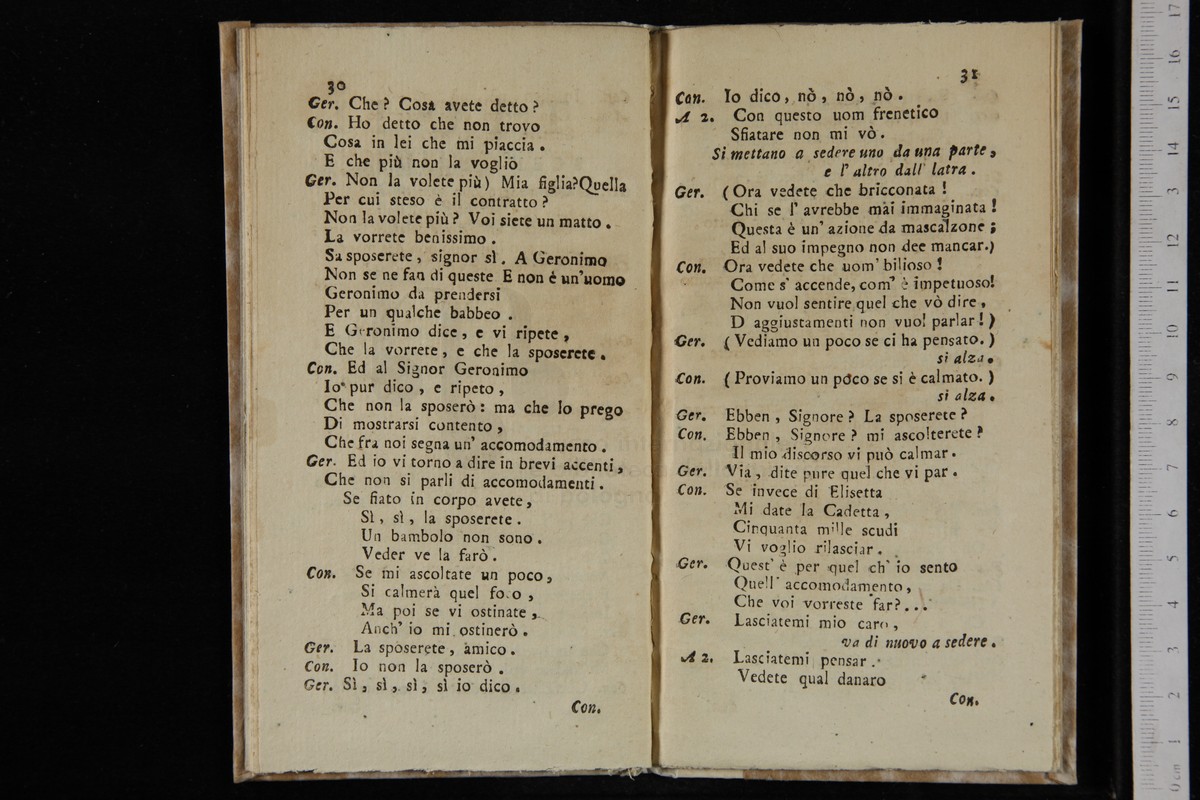 30
Ger. Che? Cosa avete detto?
Con. Ho detto che non trovo
Cosa in lei che mi piaccia.
E che più non la vogliò
Ger. Non la volete più) Mia figlia? Quella
Per cui steso è il contratto?
Non la volete più? Voi siete un matto.
La vorrete benissimo.
Sa sposerete, signor sì. A Geronimo
Non se ne fan di queste E non è un'uomo
Geronimo da prendersi
Per un qualche babbeo.
E Geronimo dice, e vi ripete,
Che la vorrete, e che la sposerete.
Con. Ed al Signor Geronimo
Io pur dico, e ripeto,
Che non la sposerò: ma che lo prego
Di mostrarsi contento,
Che fra noi segna un' accomodamento.
Ger. Ed io vi torno a dire in brevi accenti,
Che non si parli di accomodamenti.
Se fiato in corpo avete,
Sì, sì, la sposerete.
Un bambolo non sono.
Veder ve la farò.
Con. Se mi ascoltate un poco,
Si calmerà quel foco,
Ma poi se vi ostinate,
Anch' io mi ostinerò.
Ger. La sposerete, amico.
Con. Io non la sposerò.
Ger. Sì, sì, sì, sì io dico.
Con.
31
Con. Io dico, nò, nò, nò.
A 2. Con questo uom frenetico
Sfiatare non mi vò.
Si mettano a sedere uno da una parte,
e l' altro dall' latra.
Ger. (Ora vedete che bricconata!
Chi se l' avrebbe mài immaginata!
Questa è un' azione da mascalzone;
Ed al suo impegno non dee mancar.)
Con. Ora vedete che uom' bilioso!
Come s' accende, com' è impetuoso!
Non vuol sentire quel che vò dire,
D aggiustamenti non vuol parlar!)
Ger. (Vediamo un poco se ci ha pensato.)
si alza.
Con. (Proviamo un poco se si è calmato.)
si alza.
Ger. Ebben, Signore? La sposerete?
Con. Ebben, Signore? mi ascolterete?
Il mio discorso vi può calmar.
Ger. Via, dite pure quel che vi par.
Con. Se invece di Elisetta
Mi date la Cadetta,
Cinquanta mille scudi
Vi voglio rilasciar.
Ger. Quest' è per quel ch' io sento
Quell' accomodamento,
Che voi vorreste far?...
Ger. Lasciatemi mio caro,
va di nuovo a sedere.
A 2. Lasciatemi pensar.
Vedete qual danaro
Con.
0 cm 1 2 3 4 5 6 7 8 9 10 11 12 13 14 15 16 17